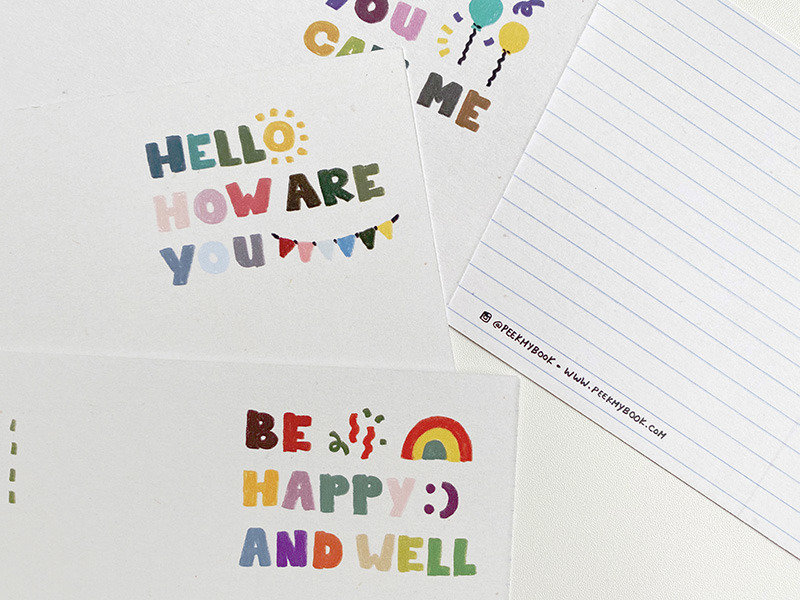 YOU
ME
HELLO
HOW ARE
YOU
@PEEKMYBOOK - WWW.PEEKMYBOOK.COM
BE
HAPPY :)
AND WELL